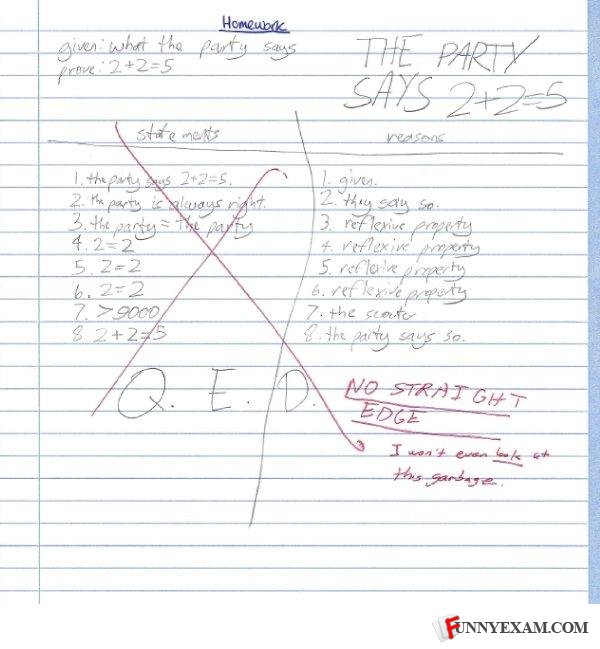 Homework
given: what the party says
prove: 2+2=5
THE PARTY
SAYS 2+2=5
statements
reasons
1. the party says 2+2=5.
1. given.
2. the party is always right.
2. they say so.
3. the party = the party
3. reflexive property
4. 2=2
4. reflexive property
5. 2=2
5. reflexive property
6. 2=2
6. reflexive property
7. >9000
7. the scouter
8. 2+2=5
8. the party says so.
Q. E. D.
NO STRAIGHT
EDGE
I won't even look at
this garbage.
FUNNYEXAM.COM